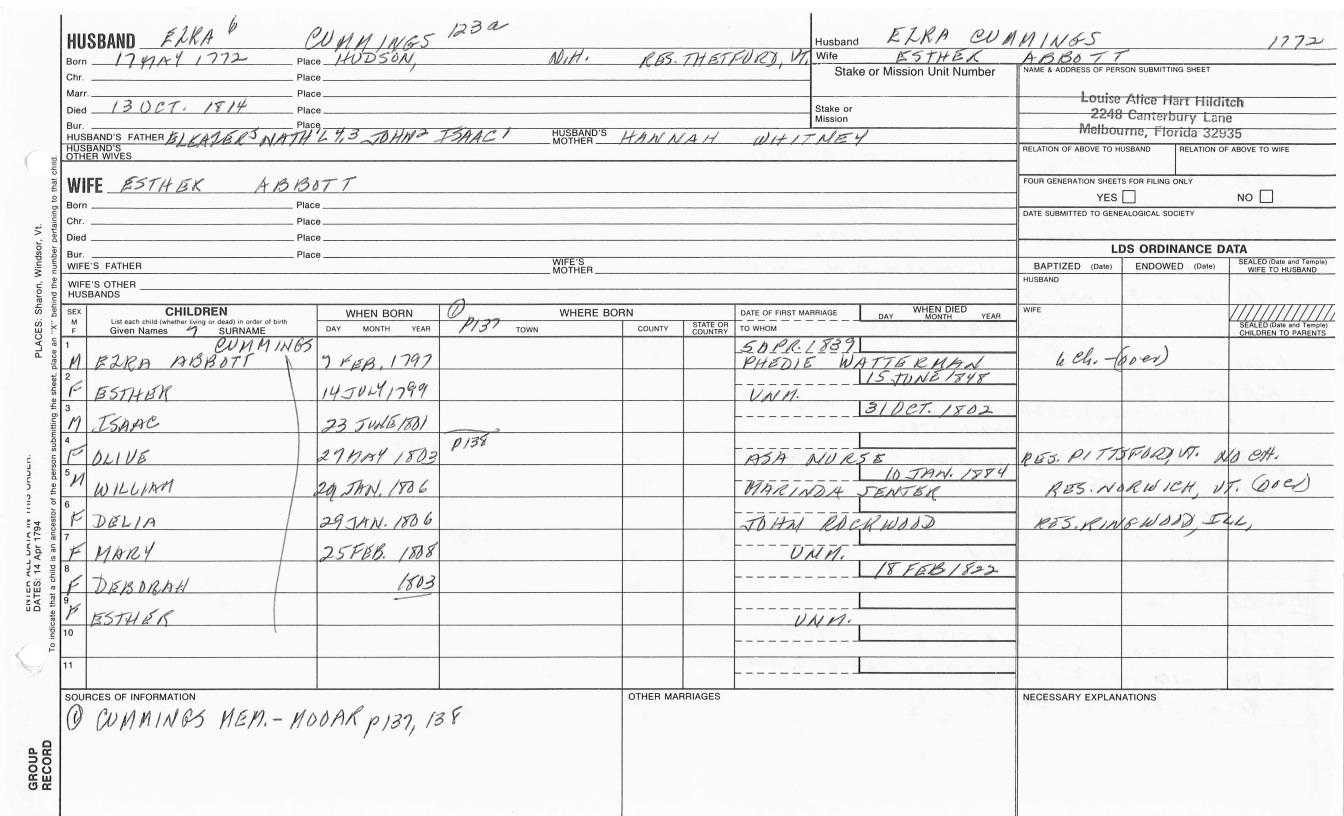 HUSBAND EZRA 6 CUMMINGS 123a
Born 17 MAY 1772 Place HUDSON, N.H. RES. THETFORD, VT.
Chr. Place
Marr. Place
Died 13 OCT. 1814 Place
Bur. Place
HUSBAND'S FATHER ELEAZER5 NATH'L 4,3 JOHN2 ISAAC1 HUSBAND'S MOTHER HANNAH WHITNEY
HUSBAND'S OTHER WIVES
WIFE ESTHER ABBOTT
Born Place
Chr. Place
Died Place
Bur. Place
WIFE'S FATHER WIFE'S MOTHER
WIFE'S OTHER HUSBANDS
Husband EZRA CUMMINGS 1772
Wife ESTHER ABBOTT
Stake or Mission Unit Number
Stake or Mission
NAME & ADDRESS OF PERSON SUBMITTING SHEET
Louise Alice Hart Hilditch
2248 Canterbury Lane
Melbourne, Florida 32935
RELATION OF ABOVE TO HUSBAND RELATION OF ABOVE TO WIFE
FOUR GENERATION SHEETS FOR FILING ONLY
YES NO
DATE SUBMITTED TO GENEALOGICAL SOCIETY
LDS ORDINANCE DATA
BAPTIZED (Date) ENDOWED (Date) SEALED (Date and Temple) WIFE TO HUSBAND
HUSBAND
WIFE
SEALED (Date and Temple) CHILDREN TO PARENTS
SEX M F
CHILDREN
List each child (whether living or dead) in order of birth
Given Names SURNAME
WHEN BORN
DAY MONTH YEAR
① P137
WHERE BORN
TOWN COUNTY STATE OR COUNTRY
DATE OF FIRST MARRIAGE
TO WHOM
WHEN DIED
DAY MONTH YEAR
1 CUMMINGS 5 APR. 1839
M EZRA ABBOTT 7 FEB. 1797 PHEDIE WATTERMAN 6 Ch. - (over)
2 15 JUNE 1848
F ESTHER 14 JULY 1799 UNM.
3 31 OCT. 1802
M ISAAC 23 JUNE 1801
4 P138
F OLIVE 27 MAY 1803 ASA NURSE RES. PITTSFORD, VT. NO CH.
5 10 JAN. 1884
M WILLIAM 29 JAN. 1806 MARINDA SENTER RES. NORWICH, VT. (over)
6
F DELIA 29 JAN. 1806 JOHN ROCKWOOD RES. RINGWOOD, ILL,
7
F MARY 25 FEB. 1808 UNM.
8 18 FEB 1822
F DEBORAH 1803
9
F ESTHER UNM.
10
11
SOURCES OF INFORMATION
① CUMMINGS MEM. - MOOAR p 137, 138
OTHER MARRIAGES
NECESSARY EXPLANATIONS
PLACES: Sharon, Windsor, Vt.
DATES: 14 Apr 1794
To indicate that a child is an ancestor of the person submitting the sheet, place an "X" behind the number pertaining to that child.
GROUP RECORD